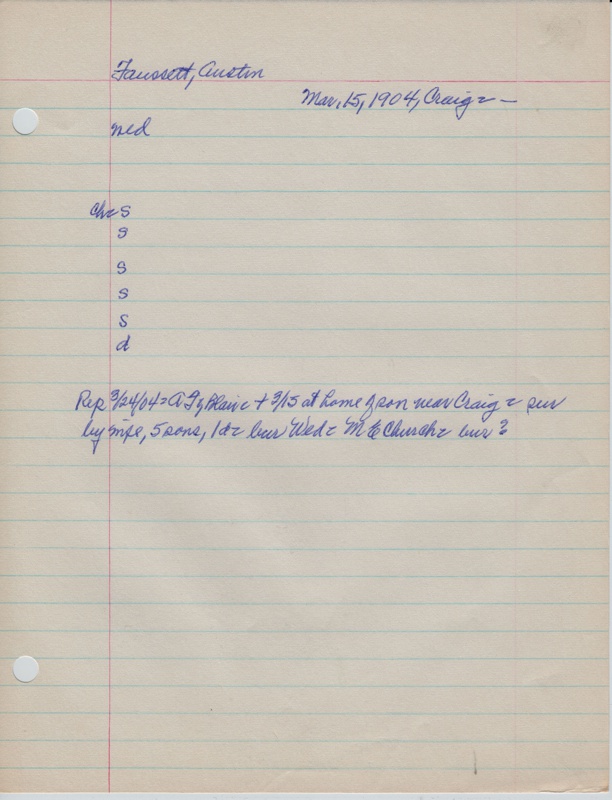 Faussett, Austin
Mar, 15, 1904, Craig = —
med
ch = s
s
s
s
s
d
Rep 3/24/04 = A F of Blair = + 3/15 at home of son near Craig = sur
by wife, 5 sons, 1 d = bur Wed = M E Church = bur ?